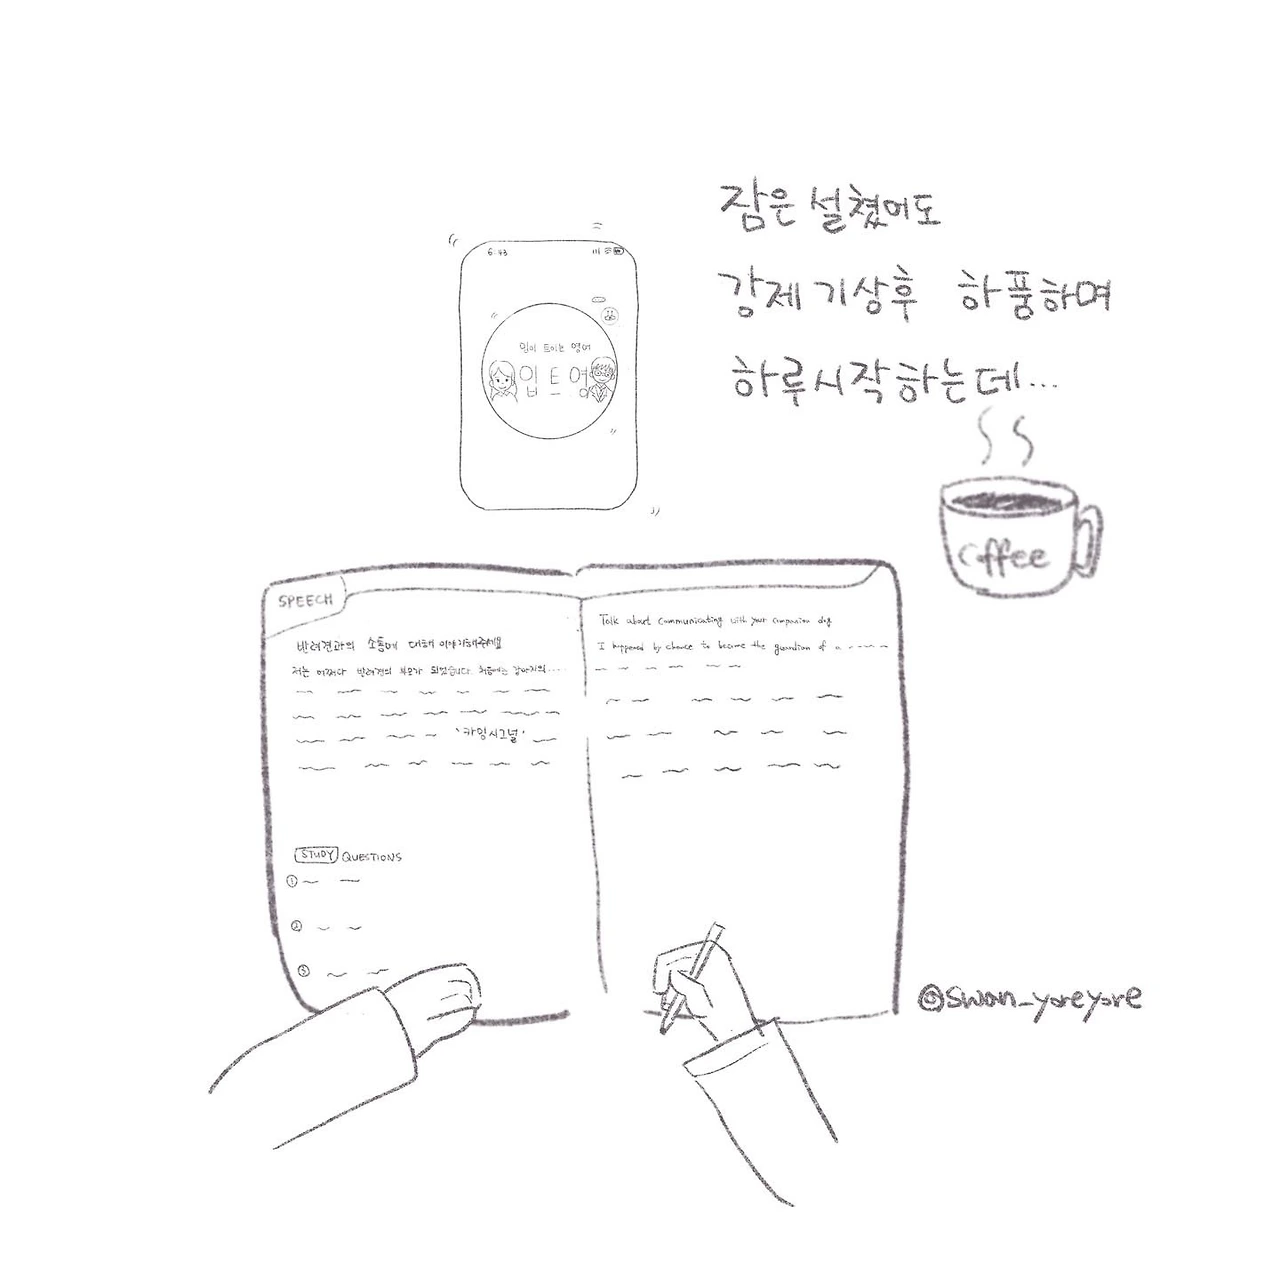 잠은 설쳤어도
강제 기상후 하품하며
하루시작하는데...
6:43
입이 트이는 영어
입트영
coffee
SPEECH
반려견과의 소통에 대해 이야기해주세요
저는 어쩌다 반려견의 보호자가 되었습니다. 처음에는 강아지의....
'카밍시그널'
STUDY QUESTIONS
①
②
③
Talk about communicating with your companion dog
I happened by chance to become the guardian of a
@swan_yoreyore